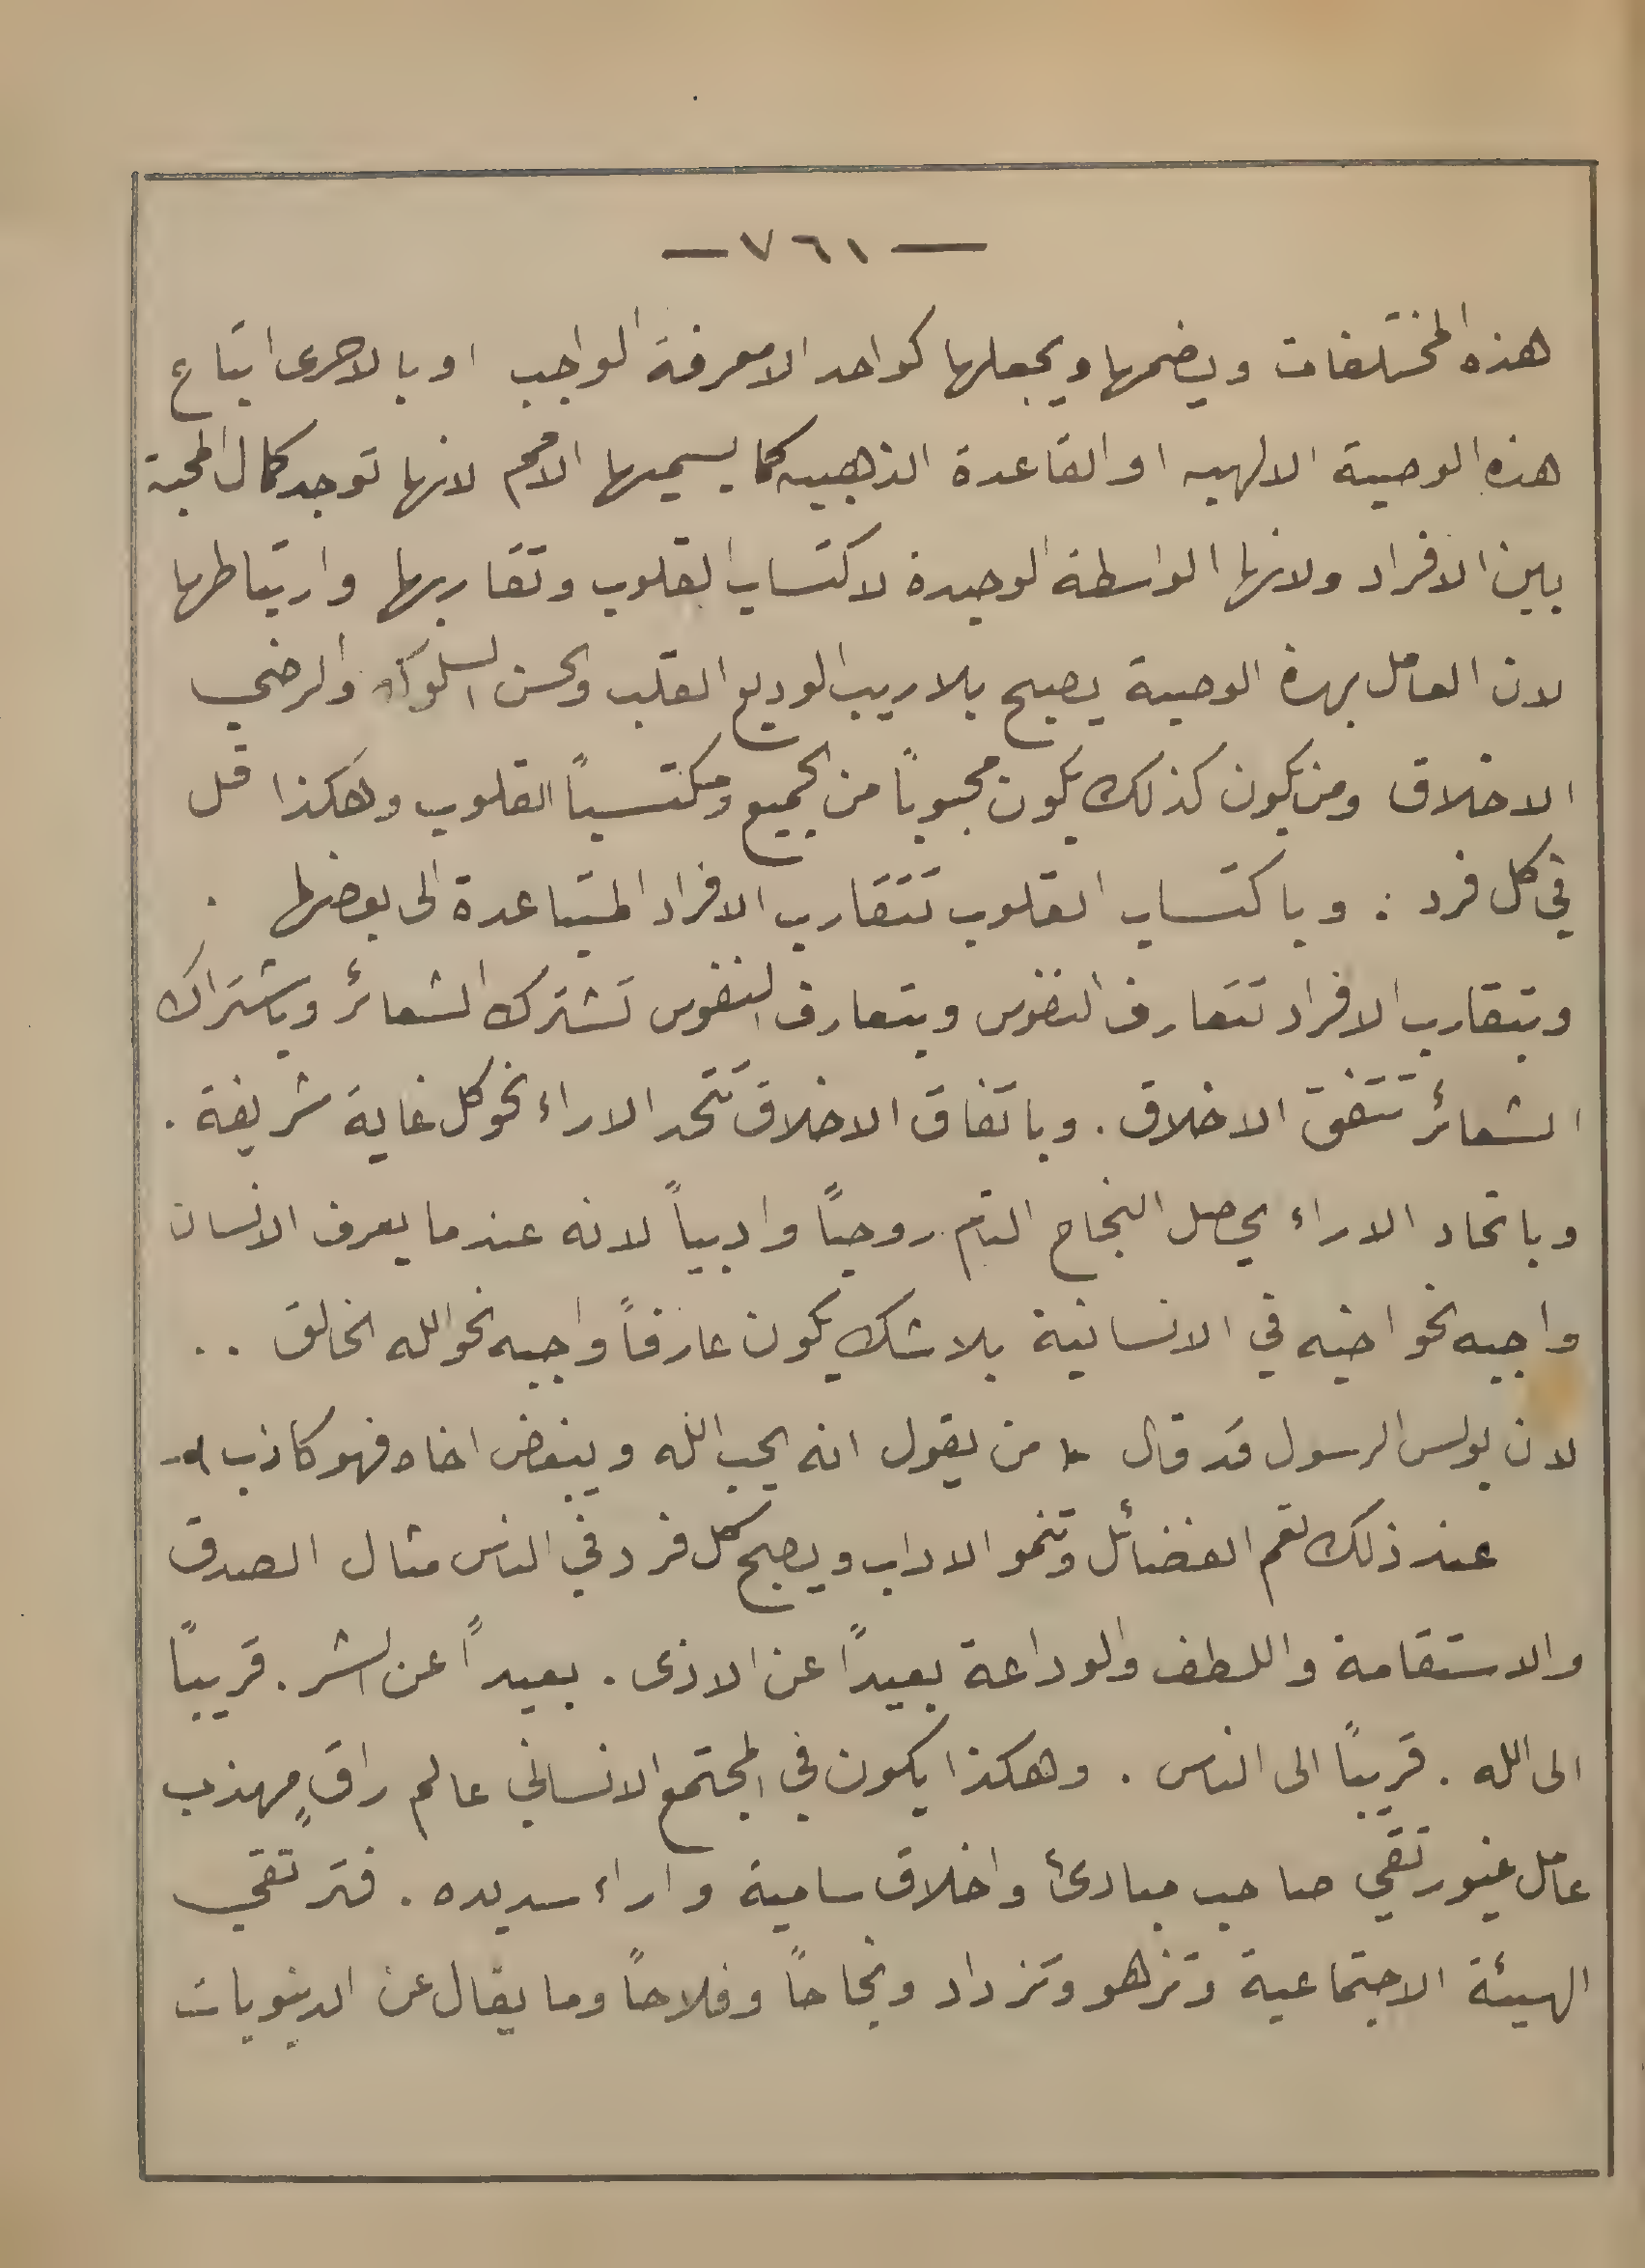 — ٧٦١ —
هذه المختلفات ويضمها ويجعلها كواحد الا معرفة الواجب او بالاحرى اتباع
هذه الوصية الالهيه او القاعدة الذهبيه كما يسميها الامم لانها توجد كمال المحبة
بين الافراد ولانها الواسطة الوحيدة لاكتساب القلوب وتقاربها وارتباطها
لان العامل بهذة الوصية يصبح بلا ريب الوديع القلب والحسن السلوك والرضي
الاخلاق ومن يكون كذلك يكون محبوباً من الجميع ومكتسباً القلوب وهكذا قل
في كل فرد : وباكتساب القلوب تتقارب الافراد المتباعدة الى بعضها .
وبتقارب الافراد تتعارف النفوس وبتعارف النفوس تشترك الشعائر وباشتراك
الشعائر تتفق الاخلاق . وباتفاق الاخلاق تتحد الاراء نحو كل غاية شريفة .
وباتحاد الاراء يحصل النجاح التام روحياً وادبياً لانه عندما يعرف الانسان
واجبه نحو اخيه في الانسانية بلا شك يكون عارفاً واجبه نحو الله الخالق ..
لان بولس الرسول قد قال « من يقول انه يحب الله ويبغض اخاه فهو كاذب »-
عند ذلك تعم الفضائل وتنمو الاداب ويصبح كل فرد في الناس مثال الصدق
والاستقامة واللطف والوداعة بعيداً عن الاذى . بعيداً عن الشر . قريباً
الى الله . قريباً الى الناس . وهكذا يكون في المجتمع الانساني عالم راقٍ مهذب
عامل غيور تقي صاحب مبادئ واخلاق سامية واراء سديده . فترتقي
الهيئة الاجتماعية وتزهو وتزداد ونجاحاً وفلاحاً وما يقال عن الدينويات